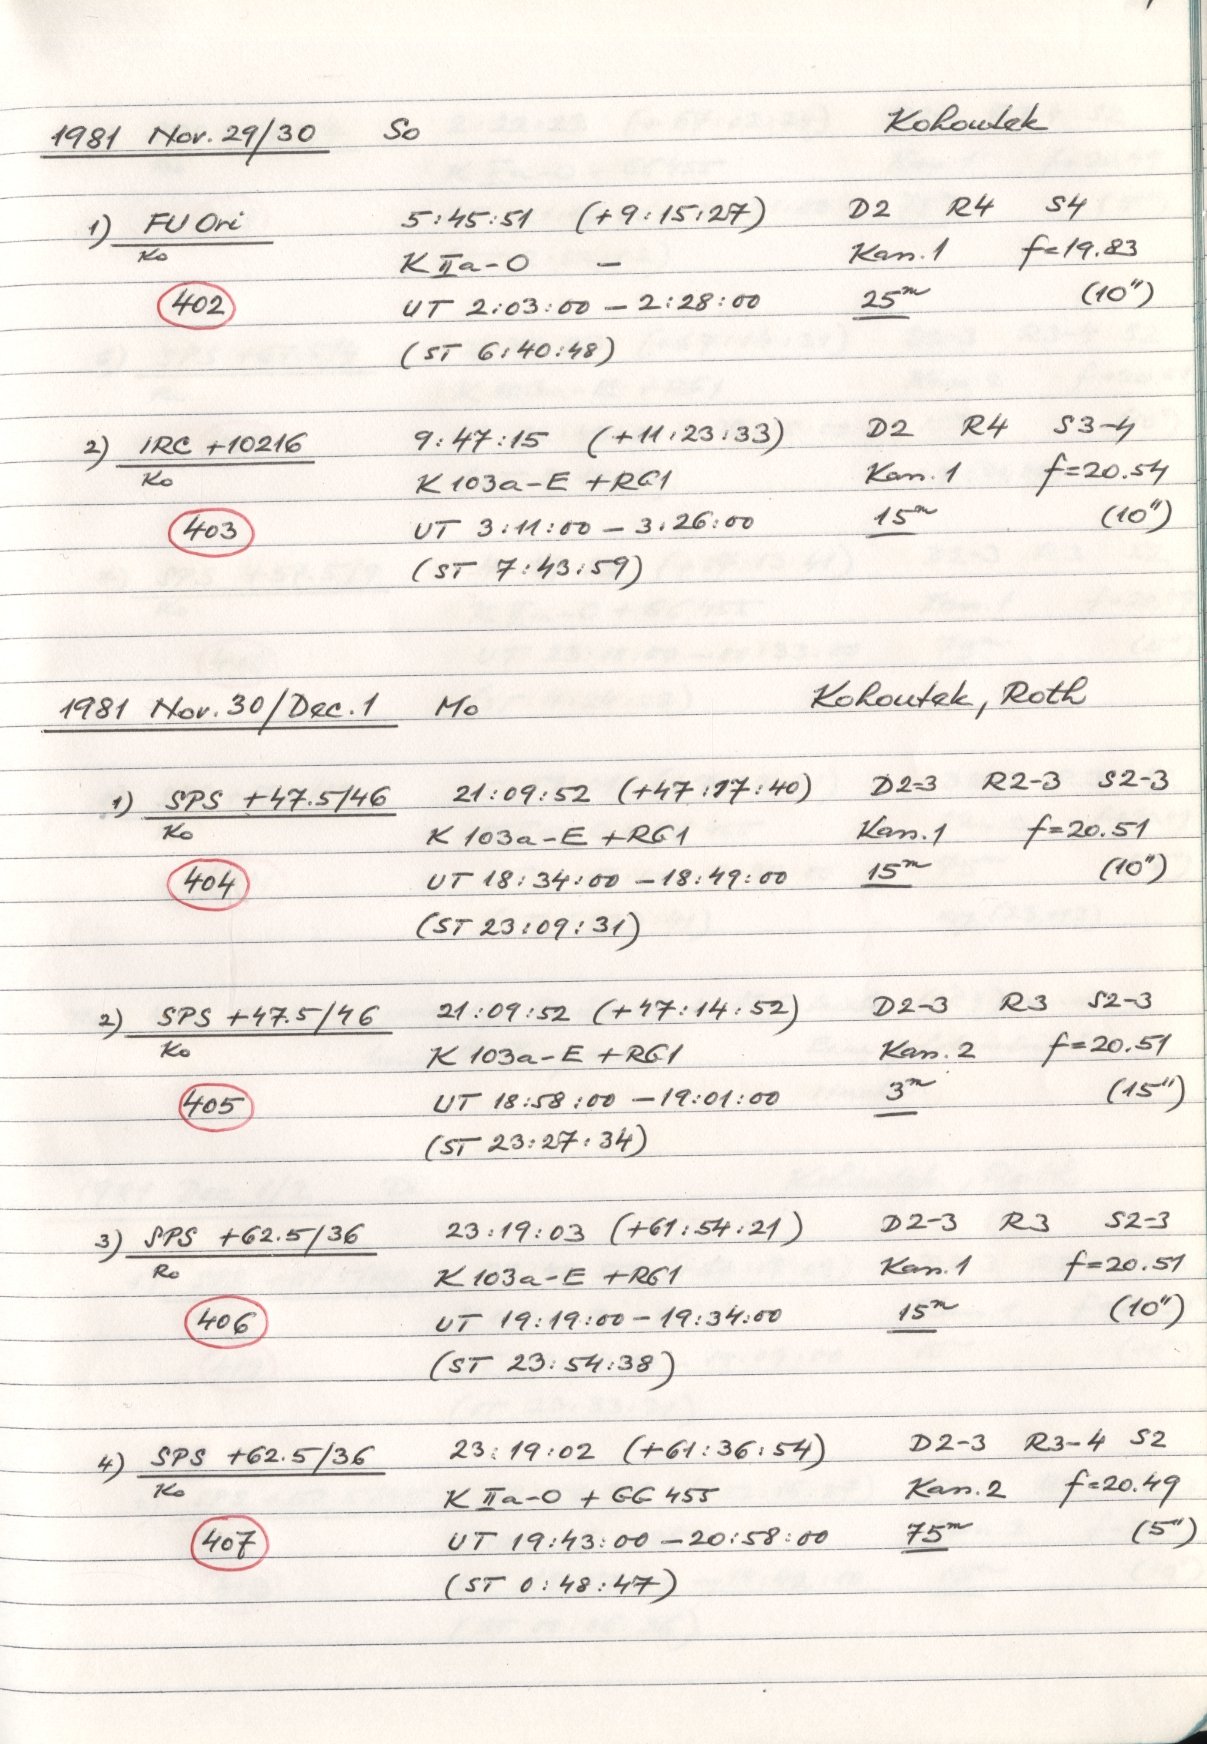 1981 Nov. 29/30 So Kohoutek
1) FU Ori 5:45:51 (+9:15:27) D2 R4 S4
Ko K IIa-O – Kan.1 f=19.83
402 UT 2:03:00 – 2:28:00 25m (10")
(ST 6:40:48)
2) IRC +10216 9:47:15 (+11:23:33) D2 R4 S3-4
Ko K 103a-E +RG1 Kan.1 f=20.54
403 UT 3:11:00 – 3:26:00 15m (10")
(ST 7:43:59)
1981 Nov. 30/Dec. 1 Mo Kohoutek, Roth
1) SPS +47.5/46 21:09:52 (+47:17:40) D2-3 R2-3 S2-3
Ko K 103a-E +RG1 Kan.1 f=20.51
404 UT 18:34:00 – 18:49:00 15m (10")
(ST 23:09:31)
2) SPS +47.5/46 21:09:52 (+47:14:52) D2-3 R3 S2-3
Ko K 103a-E +RG1 Kan.2 f=20.51
405 UT 18:58:00 – 19:01:00 3m (15")
(ST 23:27:34)
3) SPS +62.5/36 23:19:03 (+61:54:21) D2-3 R3 S2-3
Ro K 103a-E +RG1 Kan.1 f=20.51
406 UT 19:19:00 – 19:34:00 15m (10")
(ST 23:54:38)
4) SPS +62.5/36 23:19:02 (+61:36:54) D2-3 R3-4 S2
Ko K IIa-O + GG 455 Kan.2 f=20.49
407 UT 19:43:00 – 20:58:00 75m (5")
(ST 0:48:47)